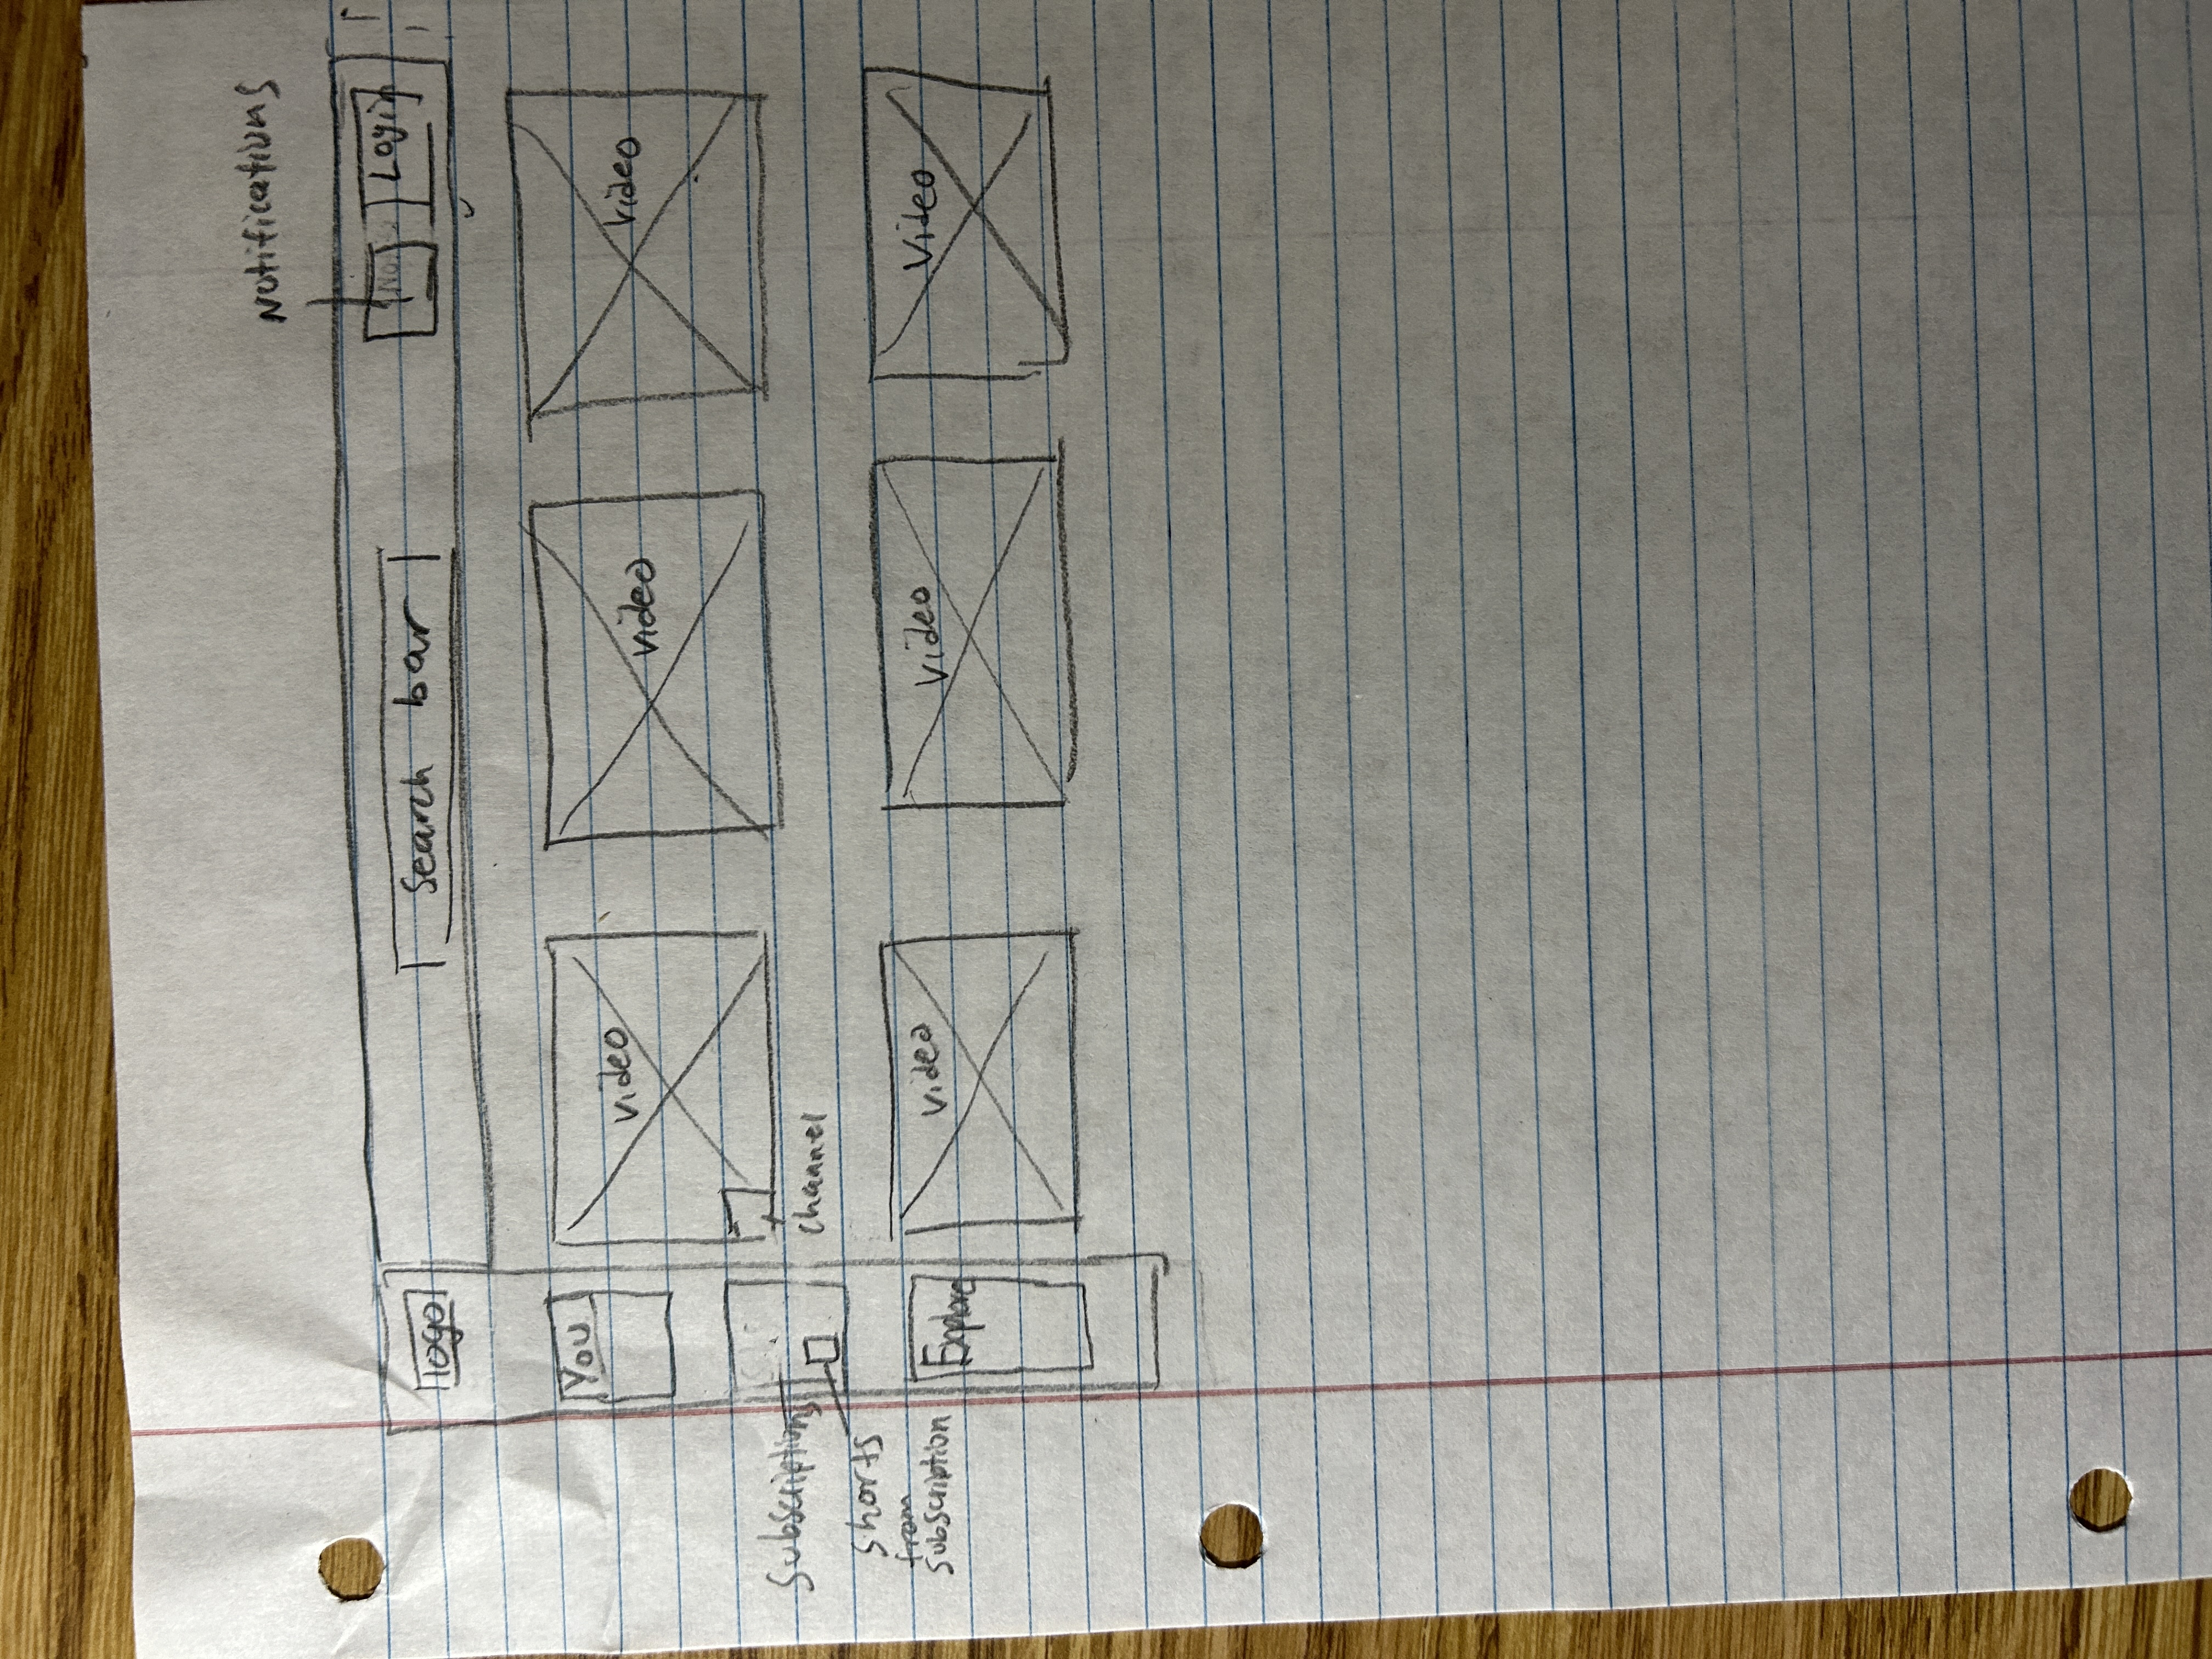 Notifications
logo
Search bar
Login
You
video
video
video
Subscriptions
channel
Shorts
from
subscription
Explore
video
video
Video